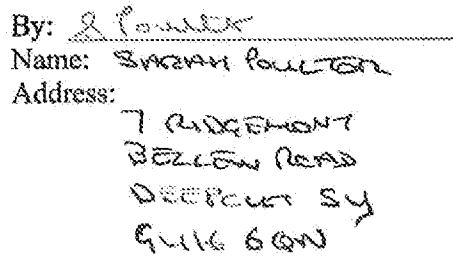 By: S Poulter
Name: SARAH POULTER
Address:
7 RIDGEMONT
BELLEW ROAD
DEEPCUT SY
GU16 6QN